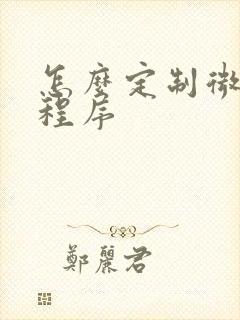 怎麼定制微
程序
鄭麗君